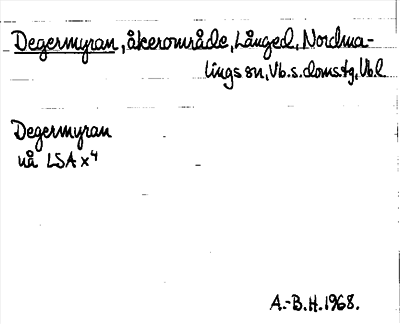 Degermyran, åkerområde, Långed, Nordma-
lings sn, Vb.s.domstg, Vb.l
Degermyran
nå LSA x⁴
A.-B.H. 1968.